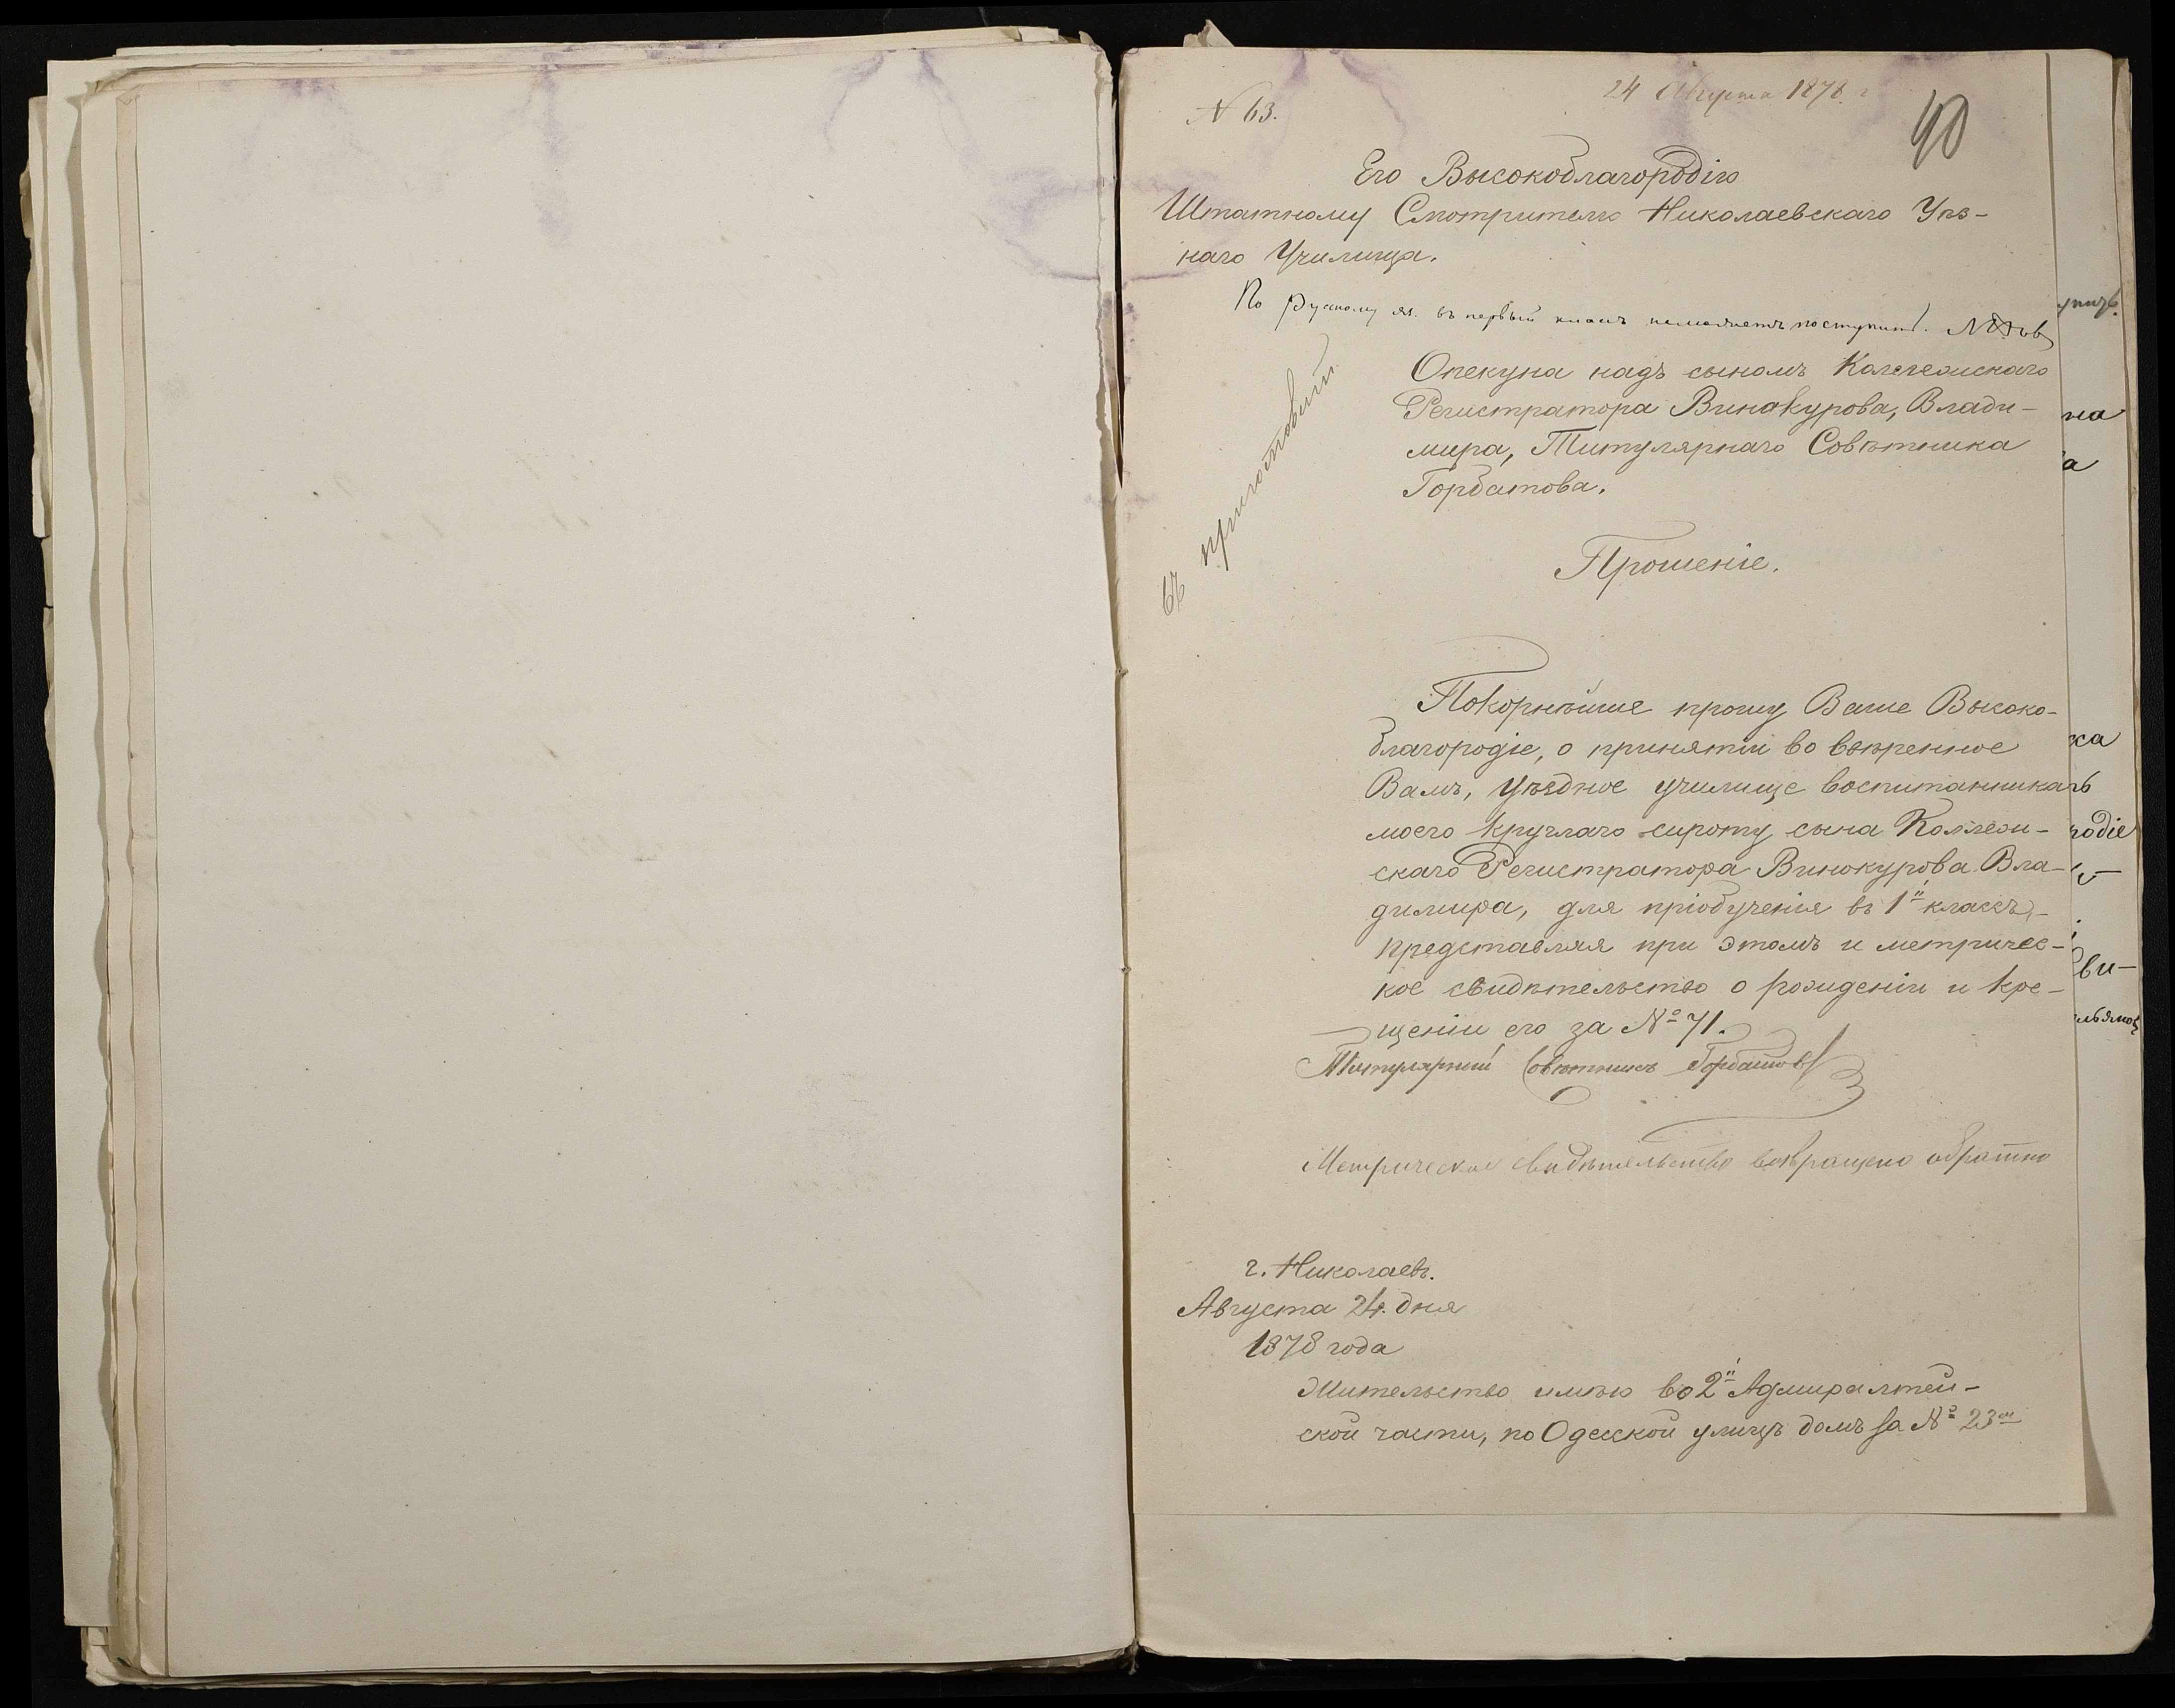 24 Августа 1878 г
N 63.
40
Его Высокоблагородію
Штатному Смотрителю Николаевскаго Уѣз-
наго Училища.
По Русскому яз. въ первый классъ неможетъ поступить.
въ приготовит.
Опекуна надъ сыномъ Коллежскаго
Регистратора Винакурова, Влади-
мира, Титулярнаго Совѣтника
Горбатова.
Прошеніе.
Покорнѣйше прошу Ваше Высоко-
благородіе, о принятіи во ввѣренное
Вамъ, уѣздное училище воспитанника
моего круглаго сироту сына Коллежи-
скаго Регистратора Винокурова Вла-
димира, для пріобученія въ 1й классъ,
представляя при этомъ и метричес-
кое свидѣтельство о рожденіи и кре-
щеніи его за № 71.
Титулярный Совѣтникъ Горбатовъ
Метрическое свидѣтельство возвращено обратно
г. Николаевъ.
Августа 24. дня
1878 года
Жительство имѣю во 2й Адмиралтей-
ской части, по Одесской улицѣ домъ за № 23м
на
а
ка
ъ
родіе
ви-